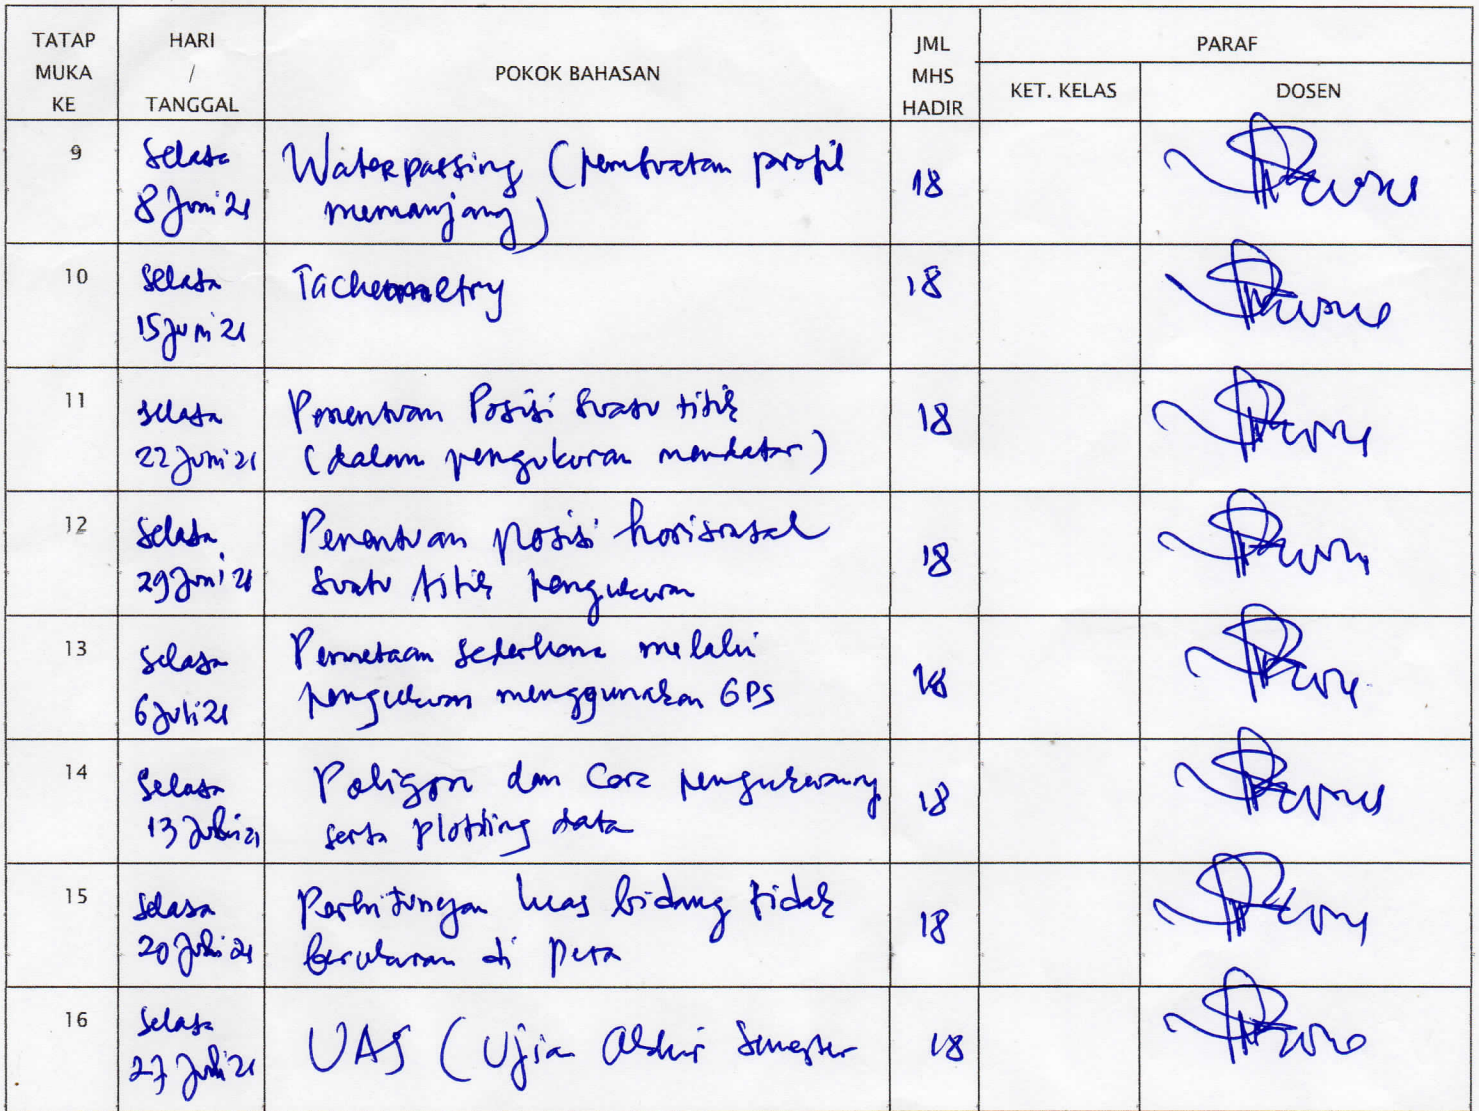 TATAP MUKA KE
HARI / TANGGAL
POKOK BAHASAN
JML MHS HADIR
PARAF
KET. KELAS
DOSEN
9
Selasa
8 Juni 21
Waterpassing (pembuatan profil
memanjang)
18
10
Selasa
15 Juni 21
Tachemetry
18
11
Selasa
22 Juni 21
Penentuan Posisi Suatu titik
(dalam pengukuran mendatar)
18
12
Selasa
29 Juni 21
Penentuan posisi horisontal
Suatu titik pengukuran
18
13
Selasa
6 Juli 21
Pemetaan Sederhana melalui
pengukuran menggunakan GPS
18
14
Selasa
13 Juli 21
Poligon dan Cara pengukurannya
serta plotting data
18
15
Selasa
20 Juli 21
Perhitungan luas bidang tidak
beraturan di Peta
18
16
Selasa
27 Juli 21
UAS (Ujian Akhir Semester
18